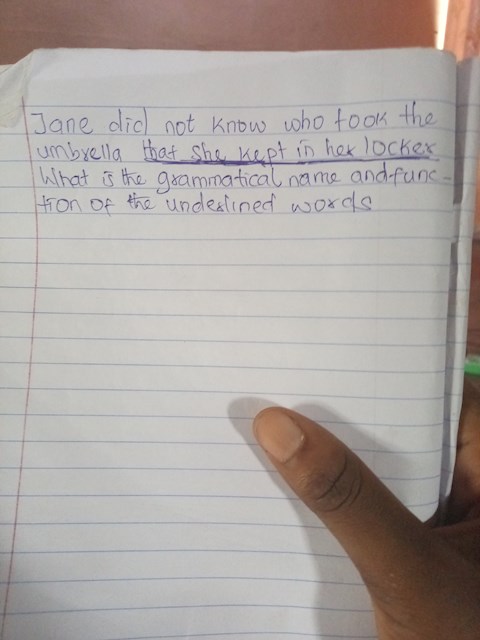 Jane did not know who took the
umbrella that she kept in her locker
What is the grammatical name and func-
tion of the underlined words